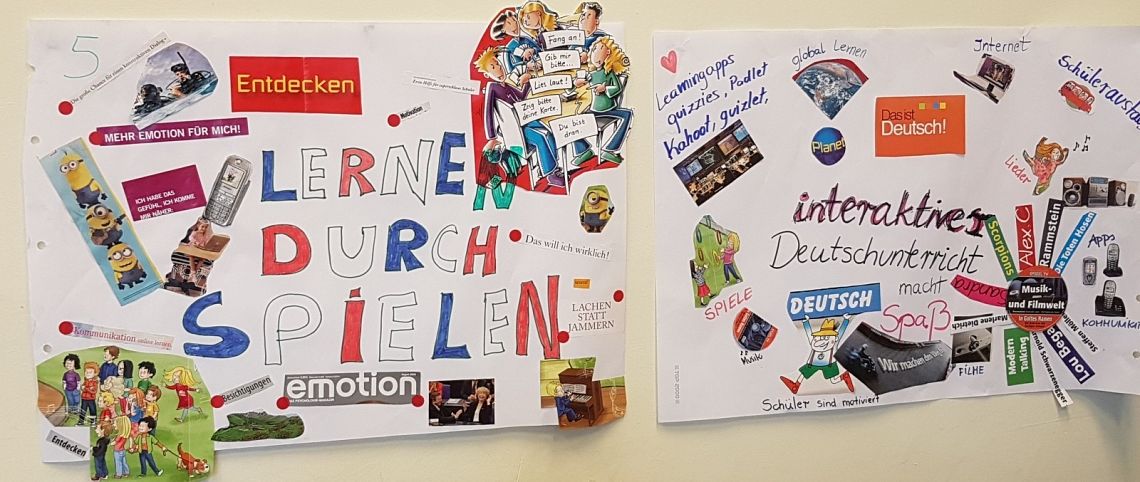 5
Die große Chance für einen konstruktiven Dialog
Entdecken
Motivation
Fang an!
Gib mir
bitte...
Lies laut!
Zeig bitte
deine Karte.
Du bist
dran.
MEHR EMOTION FÜR MICH!
ICH HABE DAS
GEFÜHL, ICH KOMME
MIR NÄHER.
LERNEN
DURCH
SPIELEN
Das will ich wirklich!
LACHEN
STATT
JAMMERN
Kommunikation
Besichtigungen
emotion
Entdecken
Learningapps
quizzies, Padlet
Kahoot, quizlet,
global Lernen
Planet
Das ist
Deutsch!
Internet
Schüleraustau
Lieder
interaktives
Deutschunterricht
macht
Spaß
SPIELE
Musik
DEUTSCH
Wir machen den Weg
Schüler sind motiviert
FILME
Scorpions
Alex C
Rammstein
Die Toten Hosen
Sandra
Musik-
und Filmwelt
In Gottes Namen
Marlene Dietrich
Modern
Talking
Arnold Schwarzenegger
Lou Bega
Apps